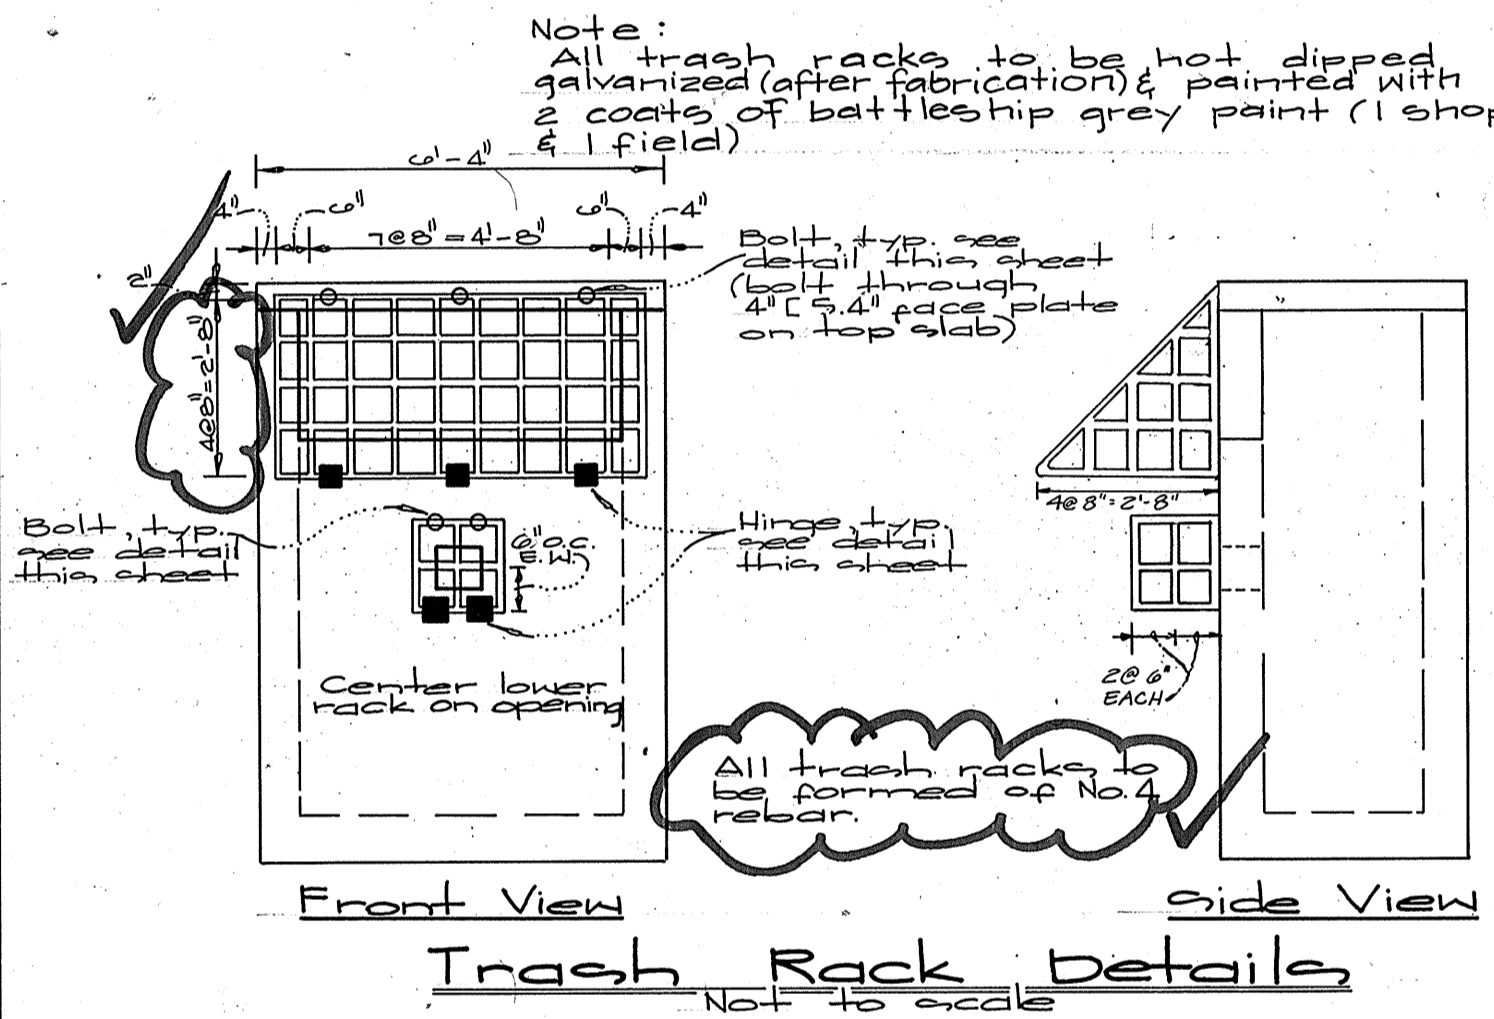 Note:
All trash racks to be hot dipped
galvanized (after fabrication) & painted with
2 coats of battleship grey paint (1 shop
& 1 field)
6'-4"
4"
6"
7@8"=4'-8"
6"
4"
2"
4@8"=2'-8"
Bolt, typ. see
detail this sheet
(bolt through
4"[5.4" face plate
on top slab)
4@8"=2'-8"
Bolt, typ.
see detail
this sheet
6" O.C.
E.W.
Hinge, typ.
see detail
this sheet
2@6"
EACH
Center lower
rack on opening
All trash racks to
be formed of No.4
rebar.
Front View
Side View
Trash Rack Details
Not to scale